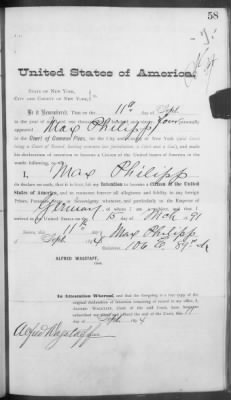 58
United States of America.
STATE OF NEW YORK,
CITY AND COUNTY OF NEW YORK, } ss.
Be it Remembered, That on the 11th day of Sept
in the year of our Lord one thousand eight hundred and ninety four personally
appeared Max Philipp in
the Court of Common Pleas, for the City and County of New York (said Court
being a Court of Record, having common law jurisdiction, a Clerk and a Seal), and made
his declaration of intention to become a Citizen of the United States of America in the
words following, to wit:
I, Max Philipp
do declare on oath, that it is bona fide my Intention to become a Citizen of the United
States of America, and to renounce forever all allegiance and fidelity to any foreign
Prince, Potentate, State or Sovereignty whatever, and particularly to the Emperor of
Germany of whom I am a subject, and that I
arrived in the United States on the 15 day of Mch 91
Sworn, this 11th
day of Sept 4 Max Philipp
Residence, 106 E. 89
ALFRED WAGSTAFF,
Clerk.
In Attestation Whereof, and that the foregoing is a true copy of the
original declaration of intention remaining of record in my office, I,
ALFRED WAGSTAFF, Clerk of the said Court, have hereunto
subscribed my name and affixed the seal of the said Court, this 11
day of Sept 4
Alfred Wagstaff